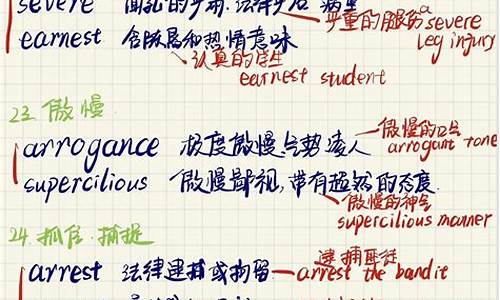 severe
严重的腿伤 a severe
leg injury
earnest 含殷勤和热情意味
认真的学生
earnest student
23. 傲慢
arrogance 极度傲慢,气势凌人
傲慢的口气
arrogant tone
supercilious 傲慢鄙视,带有超然的态度
傲慢的神气
supercilious manner
24. 抓住. 捕捉
arrest 法律逮捕或拘留
逮捕匪徒
arrest the bandit